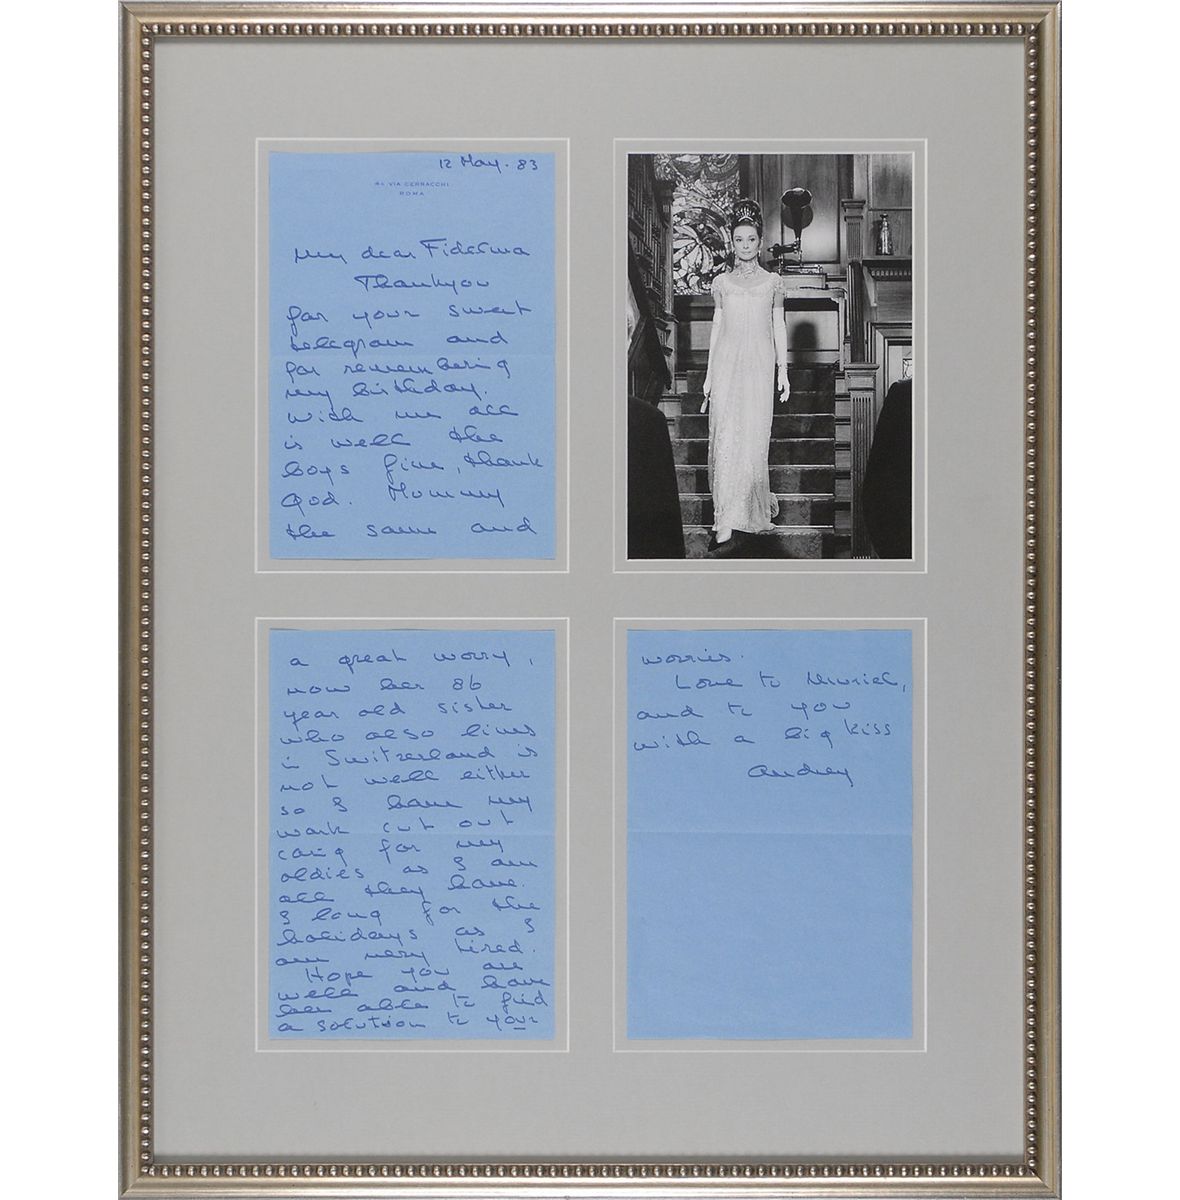 12 May. 83
VIA CERRACCHI
ROMA
My dear Fiderma
Thankyou
for your sweet
telegram and
for remembering
my birthday.
With me all
is well the
boys fine, thank
God. Mommy
the same and
a great worry,
now her 86
year old sister
who also lives
in Switzerland is
not well either
so I have my
work cut out
caring for my
oldies as I am
all they have.
I long for the
holidays as I
am very tired.
Hope you are
well and have
been able to find
a solution to your
worries.
Love to
and to you
with a big kiss
Audrey